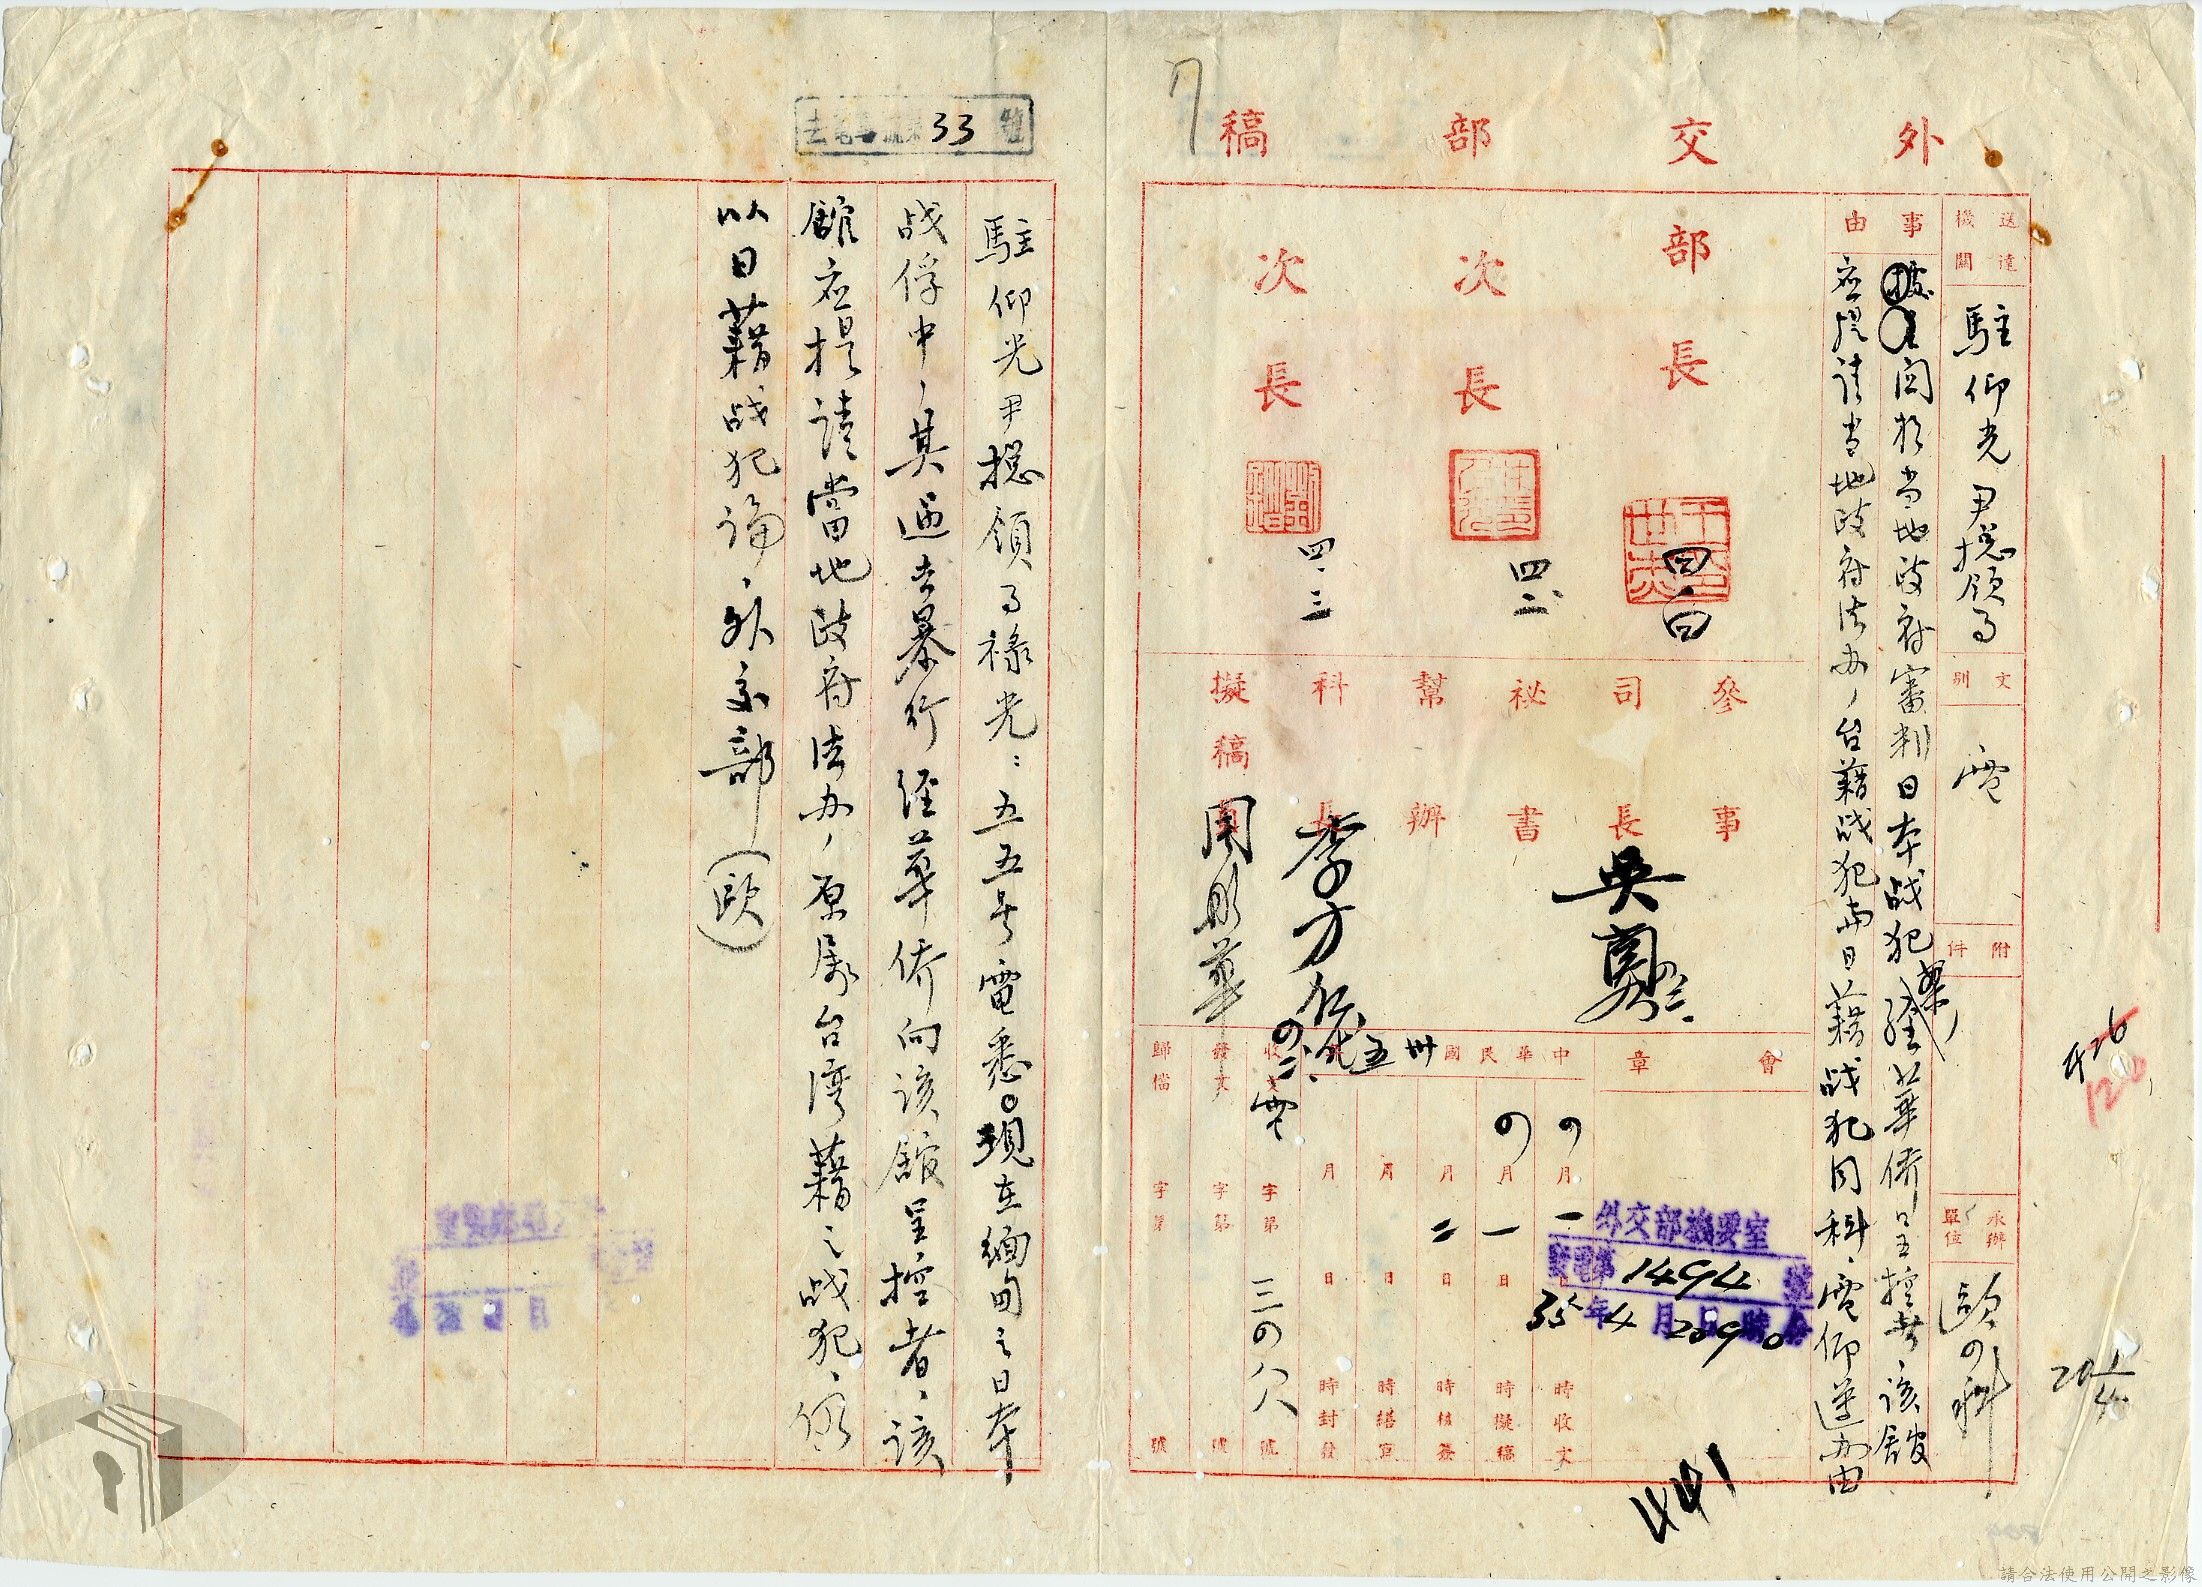 外交部稿
送達機關
駐仰光尹總領事
文別
電
附件
承辦單位
歐四科
事由
關於当地政府審判日本战犯案,經華侨呈控者该舘
应提请当地政府法办,台籍战犯与日籍战犯同科、電仰遵办由
部長
四
次長
四
次長
四、三
參事
司長
吳
祕書
幫辦
科長
李方
擬稿員
周彤華
會章
中華民國卅五年
四月一日時收文
四月一日時擬稿
月二日時核簽
月日時繕寫
月日時封發
收文電字第三四八八號
發文字第號
歸檔字第號
外交部機要室
發電第14974號
35年4月
441
33
號
駐仰光尹總領事祿光:五五号電悉。現在緬甸之日本
战俘中,其過去暴行經華侨向该舘呈控者、该
舘应提请當地政府法办,原屬台湾籍之战犯、仍
以日籍战犯論、外交部(歐)
請合法使用公開之影像